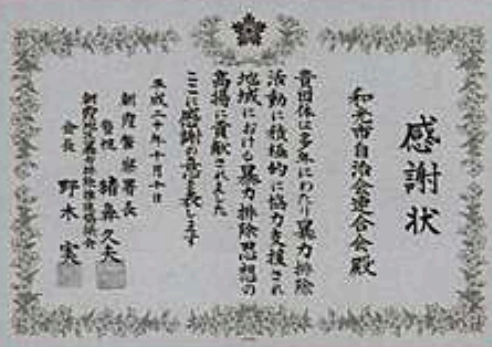 感謝状
和光市自治会連合会殿
貴団体は多年にわたり暴力排除
活動に積極的に協力支援され
地域における暴力排除思想の
高揚に貢献されました
ここに感謝の意を表します
平成二十年十月十日
朝霞警察署長
警視 猪鼻久夫
会長 野木実